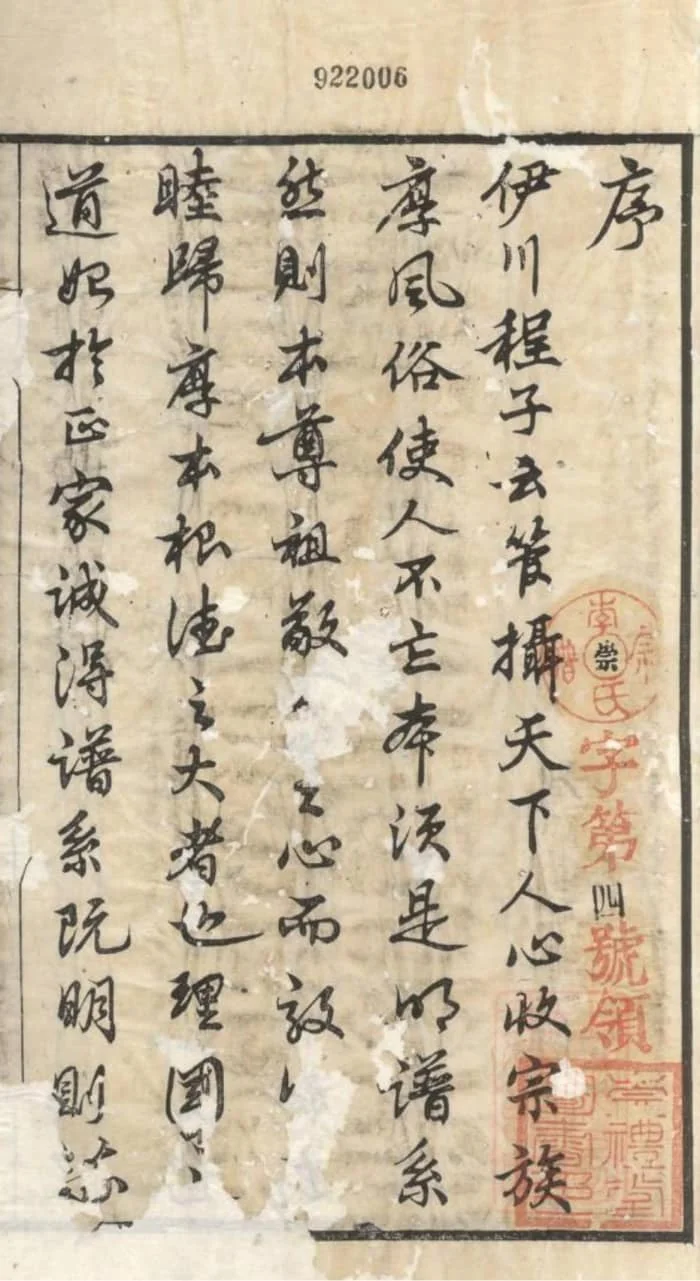 922006
序
伊川程子云管攝天下人心收宗族
厚風俗使人不亡本須是明譜系
然則本尊祖敬之心而敦
睦歸厚本根之大者也理國
道始於正家誠得譜系既明則
李氏宗譜
崇字第四號領